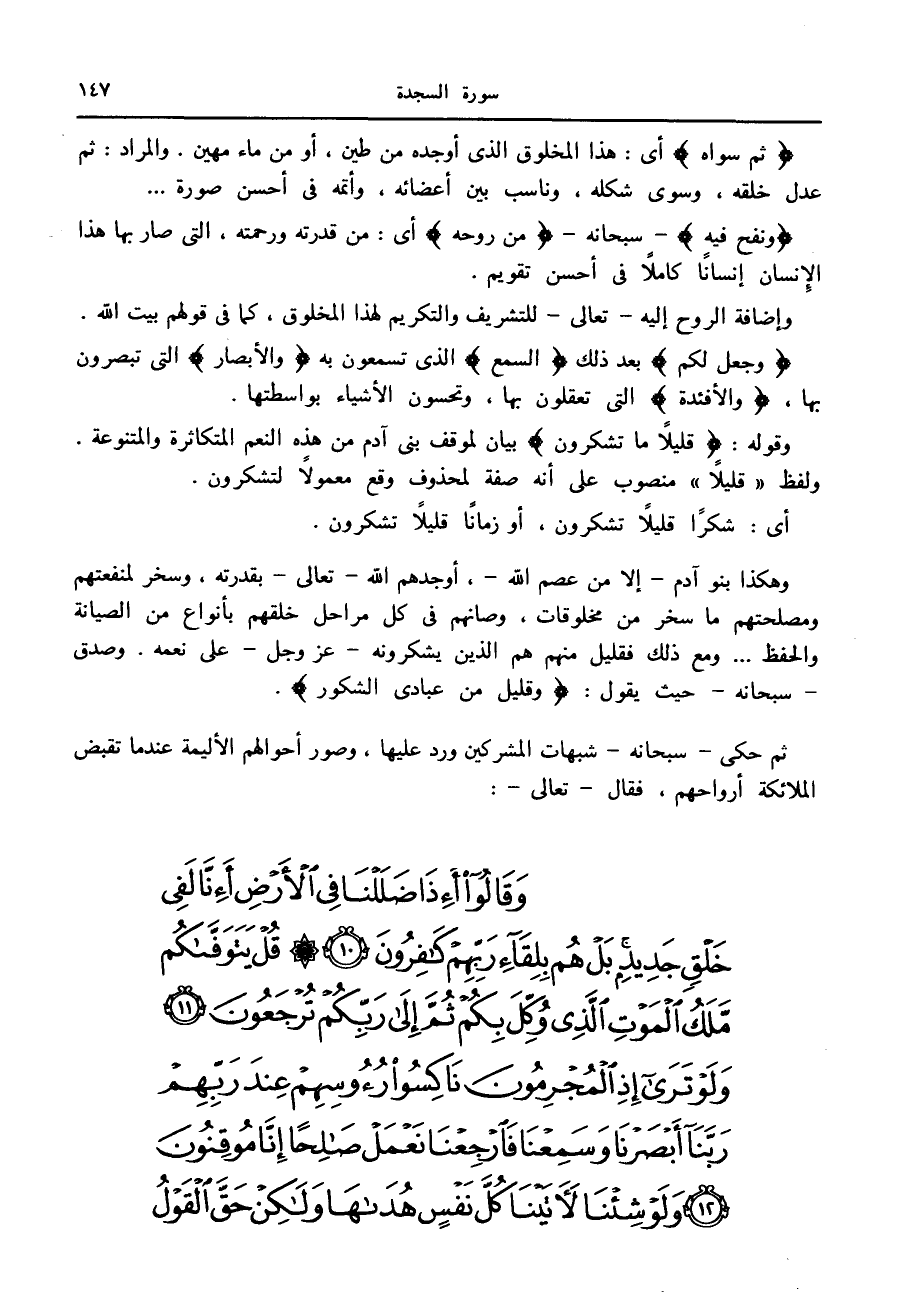 سورة السجدة ١٤٧
﴿ ثم سواه ﴾ أى : هذا المخلوق الذى أوجده من طين ، أو من ماء مهين . والمراد : ثم
عدل خلقه ، وسوى شكله ، وناسب بين أعضائه ، وأتمه فى أحسن صورة ...
﴿ونفخ فيه ﴾ – سبحانه – ﴿ من روحه ﴾ أى : من قدرته ورحمته ، التى صار بها هذا
الإنسان إنسانًا كاملًا فى أحسن تقويم .
وإضافة الروح إليه – تعالى – للتشريف والتكريم لهذا المخلوق ، كما فى قولهم بيت الله .
﴿ وجعل لكم ﴾ بعد ذلك ﴿ السمع ﴾ الذى تسمعون به ﴿ والأبصار ﴾ التى تبصرون
بها ، ﴿ والأفئدة ﴾ التى تعقلون بها ، وتحسون الأشياء بواسطتها .
وقوله : ﴿ قليلًا ما تشكرون ﴾ بيان لموقف بنى آدم من هذه النعم المتكاثرة والمتنوعة .
ولفظ « قليلًا » منصوب على أنه صفة لمحذوف وقع معمولًا لتشكرون .
أى : شكرًا قليلًا تشكرون ، أو زمانًا قليلًا تشكرون .
وهكذا بنو آدم – إلا من عصم الله – ، أوجدهم الله – تعالى – بقدرته ، وسخر لمنفعتهم
ومصلحتهم ما سخر من مخلوقات ، وصانهم فى كل مراحل خلقهم بأنواع من الصيانة
والحفظ ... ومع ذلك فقليل منهم هم الذين يشكرونه – عز وجل – على نعمه . وصدق
– سبحانه – حيث يقول : ﴿ وقليل من عبادى الشكور ﴾ .
ثم حكى – سبحانه – شبهات المشركين ورد عليها ، وصور أحوالهم الأليمة عندما تقبض
الملائكة أرواحهم ، فقال – تعالى – :
وَقَالُوٓا۟ أَءِذَا ضَلَلْنَا فِى ٱلْأَرْضِ أَءِنَّا لَفِى
خَلْقٍ جَدِيدٍۭ ۚ بَلْ هُم بِلِقَآءِ رَبِّهِمْ كَـٰفِرُونَ ١٠ ۞ قُلْ يَتَوَفَّىٰكُم
مَّلَكُ ٱلْمَوْتِ ٱلَّذِى وُكِّلَ بِكُمْ ثُمَّ إِلَىٰ رَبِّكُمْ تُرْجَعُونَ ١١
وَلَوْ تَرَىٰٓ إِذِ ٱلْمُجْرِمُونَ نَاكِسُوا۟ رُءُوسِهِمْ عِندَ رَبِّهِمْ
رَبَّنَآ أَبْصَرْنَا وَسَمِعْنَا فَٱرْجِعْنَا نَعْمَلْ صَـٰلِحًا إِنَّا مُوقِنُونَ
١٢ وَلَوْ شِئْنَا لَـَٔاتَيْنَا كُلَّ نَفْسٍ هُدَىٰهَا وَلَـٰكِنْ حَقَّ ٱلْقَوْلُ